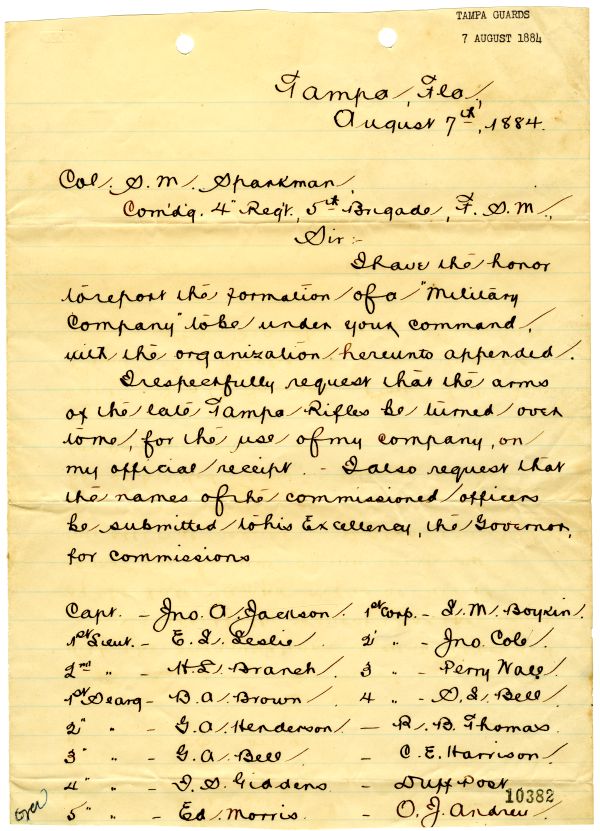 TAMPA GUARDS
7 AUGUST 1884
Tampa, Fla,
August 7th, 1884.
Col. S. M. Sparkman,
Com'd'g. 4" Reg't, 5th Brigade, F. S. M.,
Sir:-
I have the honor
to report the formation of a "Military
Company" to be under your command,
with the organization hereunto appended.
I respectfully request that the arms
of the late Tampa Rifles be turned over
to me, for the use of my company, on
my official receipt. - I also request that
the names of the commissioned officers
be submitted to his Excellency, the Governor,
for commissions
Capt. - Jno. A. Jackson. 1st Corp. - S. M. Boykin.
1st Lieut. - E. L. Leslie. 2" " - Jno. Cole.
2nd " - H. L. Branch. 3 " - Perry Nall.
1st Searg - B. A. Brown 4 " - D. L. Bell.
2" " - G. A. Henderson. - R. B. Thomas
3" " - G. A. Bell. - C. E. Harrison.
4" " - I. S. Giddens - Duff Post
5" " - Ed. Morris. - O. J. Andreu
10382
Over